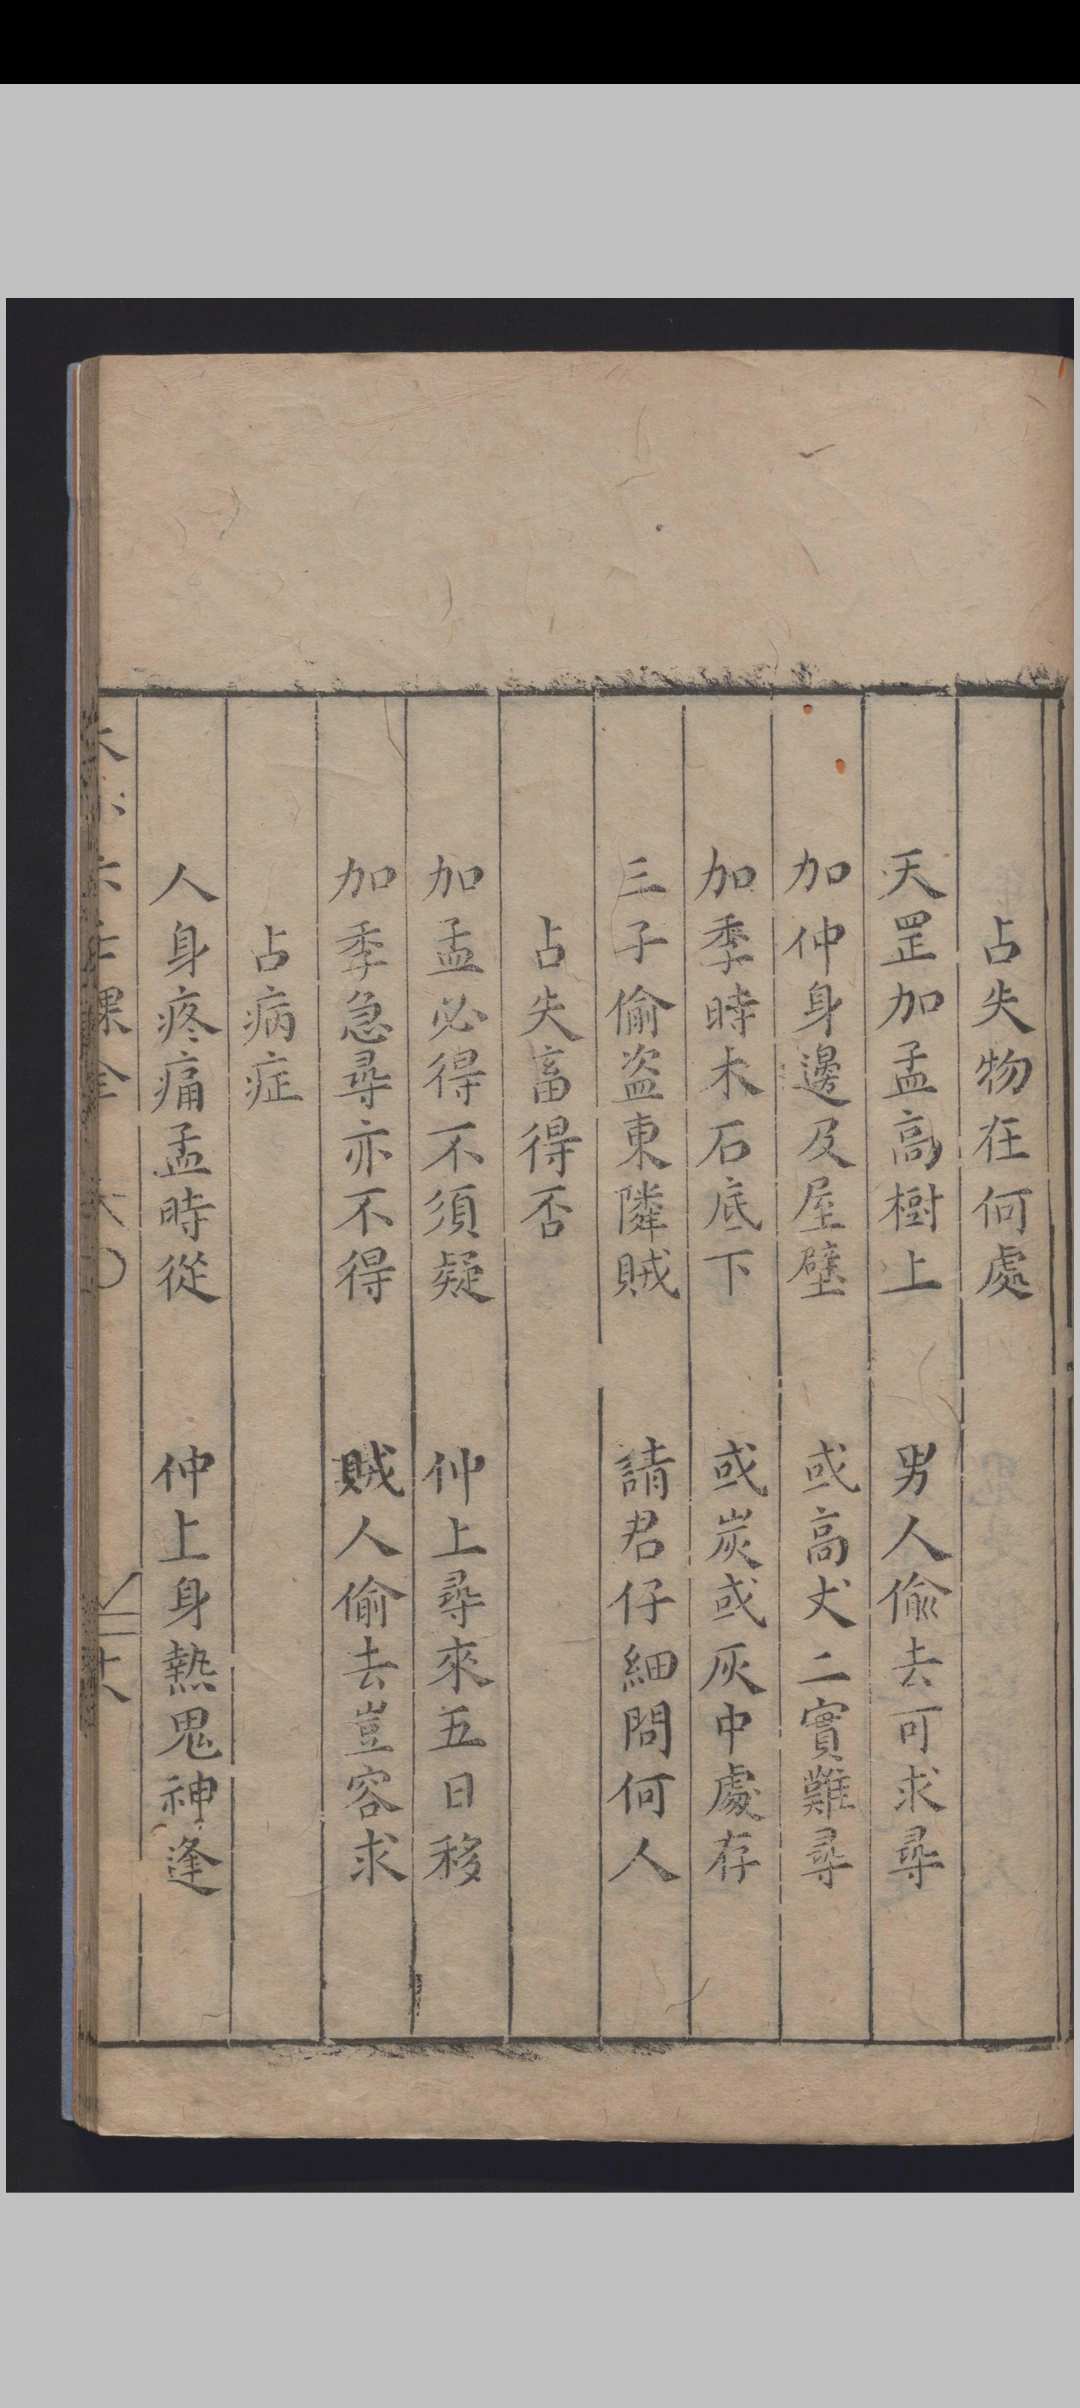 占失物在何處
天罡加孟高樹上　男人偷去可求尋
加仲身邊及屋壁　或高丈二實難尋
加季時木石底下　或炭或灰中處存
三子偷盜東隣賊　請君仔細問何人
占失畜得否
加孟必得不須疑　仲上尋來五日移
加季急尋亦不得　賊人偷去豈容求
占病症
人身疼痛孟時從　仲上身熱鬼神逢